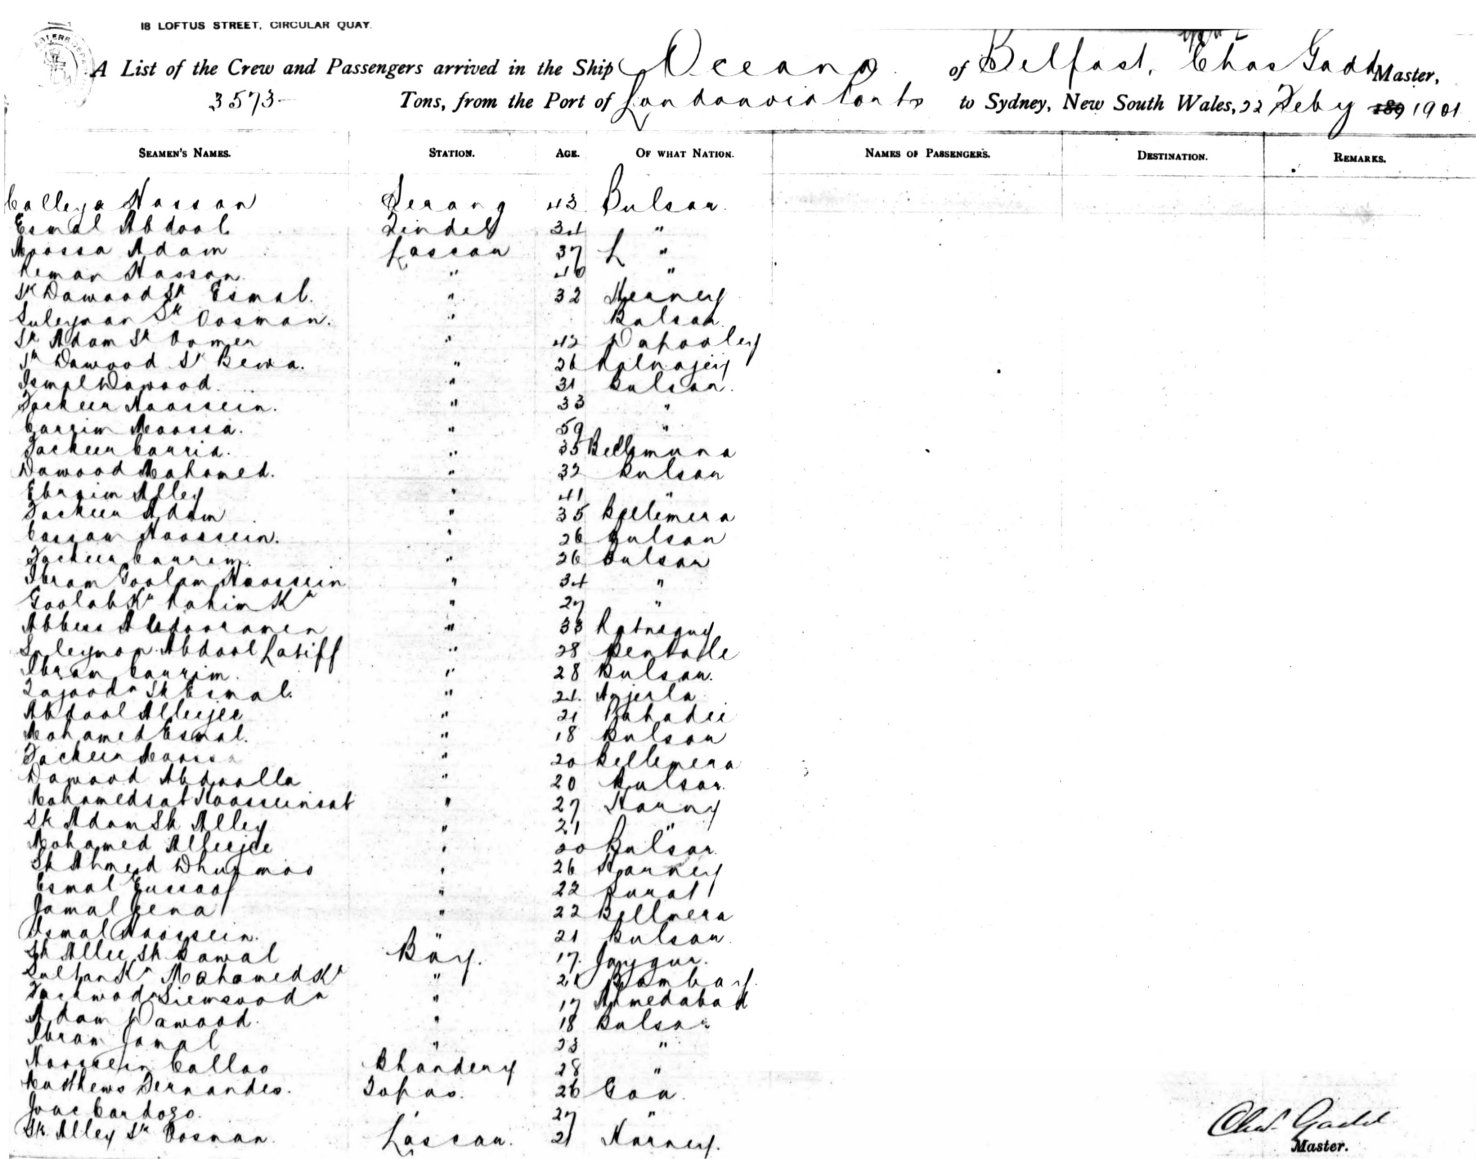 18 LOFTUS STREET, CIRCULAR QUAY.
A List of the Crew and Passengers arrived in the Ship Oceana of Belfast, Chas Gadd Master,
3573 Tons, from the Port of London via Ports to Sydney, New South Wales, 22 Feby 189 1901
SEAMEN'S NAMES. STATION. AGE. OF WHAT NATION. NAMES OF PASSENGERS. DESTINATION. REMARKS.
Calleya Hassan Serang 43 Bulsar.
Esmal Abdool Tindel 34 "
Moossa Adam Lascar 37 "
Reman Hassan " 40 "
Sk Dawood Sk Esmal. " 32
Suleyman Sk Oosman. " Bulsar
Sk Adam Sk Oomer " 42 Dapooley
Sk Dawood Sk Bewa. " 26
Ismal Dawood. " 31 Bulsar.
Fackeer Hoossein. " 33 "
Carrim Moossa. " 59 "
Fackeer Carrim. " 35
Dawood Mahomed. " 32 Bulsar
Ebraim Alley " 41 "
Fackeer Adam " 35 Bellemera
Cassam Hoossein. " 26 Bulsar
Fackeer Carrim. " 26 Bulsar
Ibram Goolam Hoossein " 34 "
Goolab Kn Rahim Kn " 27 "
Abbas Abdooramen " 33
Suleyman Abdool Latiff " 28
Ibram Carrim. " 28 Bulsar.
Sk Esmal. " 24 Anjerla
Abdool Alleejee " 21
Mahomed Esmal. " 18 Bulsar
Fackeer Moossa " 20 Bellemera
Dawood Abdoolla " 20 Bulsar.
Mahomedsat Hoosseinsat " 27 Harny
Sk Adam Sk Alley " 21 "
Mohamed Alleejee " 20 Bulsar
Sk Ahmed " 26 Harney
Esmal Eussoof " 22 Surat
Jamal " 22 Bellmera
Esmal Hoossein. " 21 Bulsar.
Sk Allee Sk Kamal Boy. 17. Jaygur.
Sultan Kn Mahomed Kn " 21 Bombay.
" 17 Ahmedabad
Adam Dawood. " 18 Bulsar
Ibram Jamal " 23 "
Hoossein Callao Bhandery 28 "
Mathews Fernandes. Topas. 26 Goa.
Joao Cardozo. " 27 "
Sk Alley Sk Oosman. Lascar. 21 Harney.
Chas. Gadd
Master.